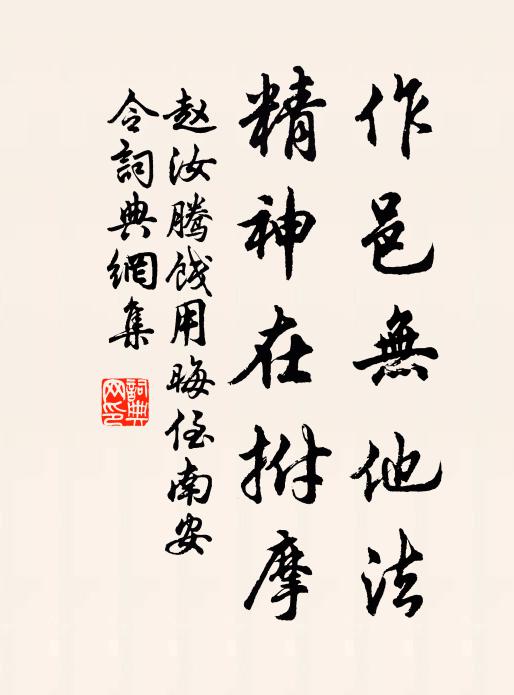 作邑無他法
精神在拊摩
赵汝腾饯用晦侄南安
令詞典網集
詞典
网印